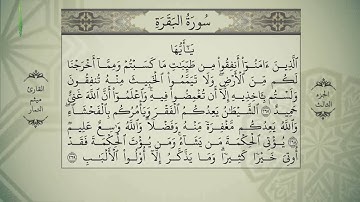 سُورَةُ البَقَرَةِ
يَٰٓأَيُّهَا
ٱلَّذِينَ ءَامَنُوٓا۟ أَنفِقُوا۟ مِن طَيِّبَٰتِ مَا كَسَبْتُمْ وَمِمَّآ أَخْرَجْنَا
لَكُم مِّنَ ٱلْأَرْضِ وَلَا تَيَمَّمُوا۟ ٱلْخَبِيثَ مِنْهُ تُنفِقُونَ
وَلَسْتُم بِـَٔاخِذِيهِ إِلَّآ أَن تُغْمِضُوا۟ فِيهِ وَٱعْلَمُوٓا۟ أَنَّ ٱللَّهَ غَنِىٌّ
حَمِيدٌ ٢٦٧ ٱلشَّيْطَٰنُ يَعِدُكُمُ ٱلْفَقْرَ وَيَأْمُرُكُم بِٱلْفَحْشَآءِ
وَٱللَّهُ يَعِدُكُم مَّغْفِرَةً مِّنْهُ وَفَضْلًا وَٱللَّهُ وَٰسِعٌ عَلِيمٌ ٢٦٨
يُؤْتِى ٱلْحِكْمَةَ مَن يَشَآءُ وَمَن يُؤْتَ ٱلْحِكْمَةَ فَقَدْ
أُوتِىَ خَيْرًا كَثِيرًا وَمَا يَذَّكَّرُ إِلَّآ أُو۟لُوا۟ ٱلْأَلْبَٰبِ ٢٦٩
الجزء
الثالث
القارئ
ميثم
التمار